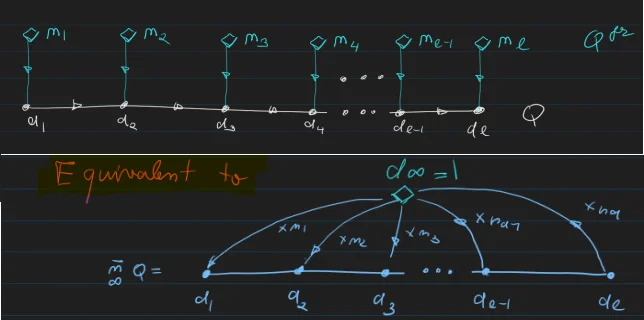 m₁ m₂ m₃ m₄ mℓ₋₁ mℓ Q^fr
...
d₁ d₂ d₃ d₄ ... dℓ₋₁ dℓ Q
Equivalent to d∞=1
×m₁ ×m₂ ×m₃
m⃗ ∞ Q = ...
d₁ d₂ d₃ dℓ₋₁ dℓ